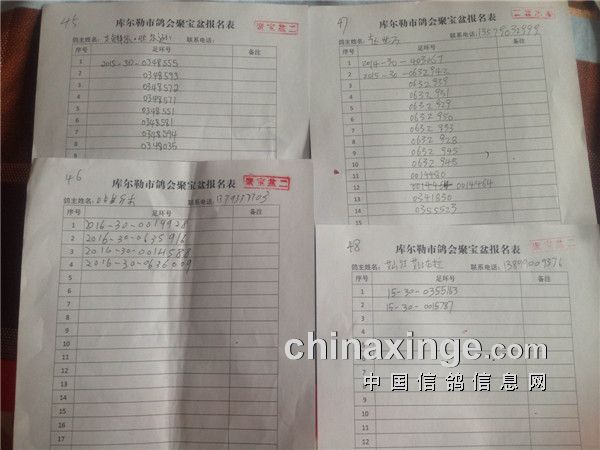 45
库尔勒市鸽会聚宝盆报名表
聚宝盆二
鸽主姓名: 联系电话:
序号 足环号 备注
1 2015-30-0348555
2 0348593
3 0348572
4 0348577
5 0348551
6 0348581
7 0348594
8 0348035
9
47
库尔勒市鸽会聚宝盆报名表
聚宝盆二
鸽主姓名: 联系电话:
序号 足环号 备注
1 2014-30-
2 2015-30-0632942
3 0632939
4 0632931
5 0632929
6 0632950
7 0632933
8 0632928
9 0632945
10 0632948
11 0014480
12 0014484
13 0341850
14 0355523
46
库尔勒市鸽会聚宝盆报名表
聚宝盆二
鸽主姓名: 联系电话:
序号 足环号 备注
1 2016-30-0019928
2 2016-30-0635916
3 2016-30-0014588
4 2016-30-0636009
5
6
7
8
9
10
11
12
13
14
15
16
17
48
库尔勒市鸽会聚宝盆报名表
聚宝盆二
鸽主姓名: 联系电话: 13899009876
序号 足环号 备注
1 15-30-0355183
2 15-30-0015787
3
4
5
6
7
8
9
10
11
12
chinaxinge.com
中国信鸽信息网